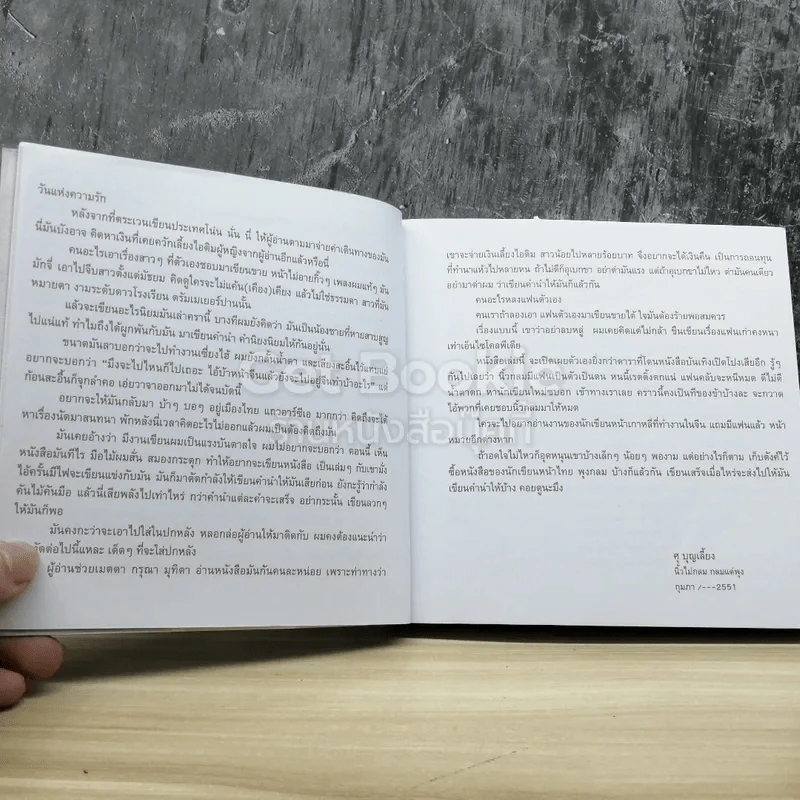 วันแห่งความรัก
หลังจากที่ตระเวนเขียนประเทศโน่น นั่น นี่ ให้ผู้อ่านตามมาจ่ายค่าเดินทางของมัน
นี่มันบังอาจ คิดหาเงินที่เคยควักเลี้ยงไอติมผู้หญิงจากผู้อ่านอีกแล้วหรือนี่
คนอะไรเอาเรื่องสาวๆ ที่ตัวเองชอบมาเขียนขาย หน้าไม่อายกิ๊วๆ เพลงผมแท้ๆ มัน
มักจี่ เอาไปจีบสาวตั้งแต่มัธยม คิดดูใครจะไม่แค้น(เคือง)เคียง แล้วไม่ใช่ธรรมดา สาวที่มัน
หมายตา งามระดับดาวโรงเรียน ดรัมเมเยอร์ปานนั้น
แล้วจะเขียนอะไรนิยมมันเล่าครานี้ บางทีผมยังคิดว่า มันเป็นน้องชายที่หายสาบสูญ
ไปแน่แท้ ทำไมถึงได้ผูกพันกับมัน มาเขียนคำนำ คำนิยงนิยมให้กันอยู่นั่น
ขนาดมันลาบอกว่าจะไปทำงานเซี่ยงไฮ้ ผมยังกลั้นน้ำตา และเสียงสะอื้นไว้แทบแย่
อยากจะบอกว่า "มึงจะไปไหนก็ไปเถอะ ไอ้บ้าหน้าจีนแล้วยังจะไปอยู่จีนทำบ้าอะไร" แต่
ก้อนสะอื้นก็จุกลำคอ เอ่ยวาจาออกมาไม่ได้จนบัดนี้
อยากจะให้มันกลับมา บ้าๆ บอๆ อยู่เมืองไทย แถวคาร์ซีเอ มากกว่า คิดถึงจะได้
หาเรื่องนัดมาสนทนา พักหลังนี้เวลาคิดอะไรไม่ออกแล้วผมเป็นต้องคิดถึงมัน
มันเคยอ้างว่า มีงานเขียนผมเป็นแรงบันดาลใจ ผมไม่อยากจะบอกว่า ตอนนี้ เห็น
หนังสือมันทีไร มือไม้ผมสั่น สมองกระตุก ทำให้อยากจะเขียนหนังสือ เป็นเล่มๆ กับเขามั่ง
ไอ้ครั้นมีไฟจะเขียนแข่งกับมัน มันก็มาตัดกำลังให้เขียนคำนำให้มันเสียก่อน ยังกะรู้ว่ากำลัง
คันไม้คันมือ แล้วนี่เสียพลังไปเท่าไหร่ กว่าคำนำแต่ละคำจะเสร็จ อย่ากระนั้น เขียนลวกๆ
ให้มันก็พอ
มันคงกะว่าจะเอาไปใส่ในปกหลัง หลอกล่อผู้อ่านให้มาติดกับ ผมคงต้องแนะนำว่า
ต่อไปนี้แหละ เด็ดๆ ที่จะใส่ปกหลัง
ผู้อ่านช่วยเมตตา กรุณา มุทิตา อ่านหนังสือมันกันคนละหน่อย เพราะท่าทางว่า
เขาจะจ่ายเงินเลี้ยงไอติม สาวน้อยไปหลายร้อยบาท จึงอยากจะได้เงินคืน เป็นการถอนทุน
ที่ทำนาแห้วไปหลายหน ถ้าไม่ดีก็อุเบกขา อย่าด่ามันแรง แต่ถ้าอุเบกขาไม่ไหว ด่ามันคนเดียว
อย่ามาด่าผม ว่าเขียนคำนำให้มันก็แล้วกัน
คนอะไรหลงแฟนตัวเอง
คนเราถ้าลองเอา แฟนตัวเองมาเขียนขายได้ ใจมันต้องร้ายพอสมควร
เรื่องแบบนี้ เขาว่าอย่าลบหลู่ ผมเคยคิดแต่ไม่กล้า ขืนเขียนเรื่องแฟนเก่าคงหนา
เท่าเอ็นไซโคลพีเดีย
หนังสือเล่มนี้ จะเปิดเผยตัวเองยิ่งกว่าดาราที่โดนหนังสือบันเทิงเปิดโปงเสียอีก รู้ๆ
กันไปเลยว่า นิ้วกลมมีแฟนเป็นตัวเป็นตน หนนี้เรตติ้งตกแน่ แฟนคลับจะหนีหมด ดีไม่ดี
น้ำตาตก หานักเขียนใหม่ชอบก เข้าทางเราเลย คราวนี้คงเป็นทีของข้าบ้างละ จะกวาด
ไอ้พวกที่เคยชอบนิ้วกลมมาให้หมด
ใครจะไปเอาอ่านงานของนักเขียนหน้าเกาหลีที่ทำงานในจีน แถมมีแฟนแล้ว หน้า
หมวยอีกต่างหาก
ถ้าอดใจไม่ไหวก็อุดหนุนเขาบ้างเล็กๆ น้อยๆ พองาม แต่อย่างไรก็ตาม เก็บตังค์ไว้
ซื้อหนังสือของนักเขียนหน้าไทย พุงกลม บ้างก็แล้วกัน เขียนเสร็จเมื่อไหร่จะส่งไปให้มัน
เขียนคำนำให้บ้าง คอยดูนะมึง
ศุ บุญเลี้ยง
นิ้วไม่กลม กลมแต่พุง
กุมภา /---2551
Get Bookie
ร้านหนังสือบุ๊คกี้